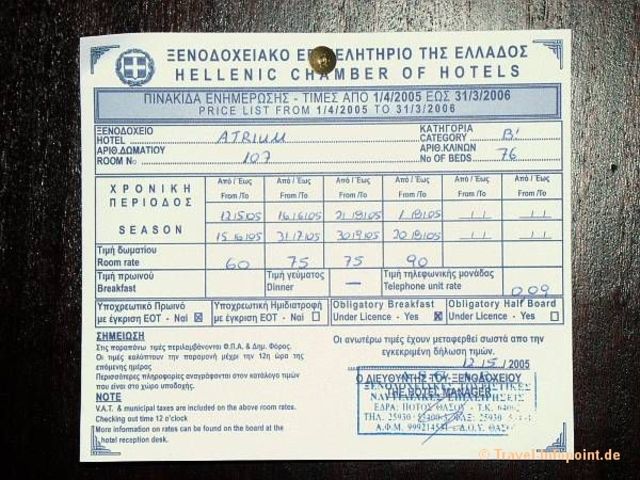 ΞΕΝΟΔΟΧΕΙΑΚΟ ΕΠΙΜΕΛΗΤΗΡΙΟ ΤΗΣ ΕΛΛΑΔΟΣ
HELLENIC CHAMBER OF HOTELS
ΠΙΝΑΚΙΔΑ ΕΝΗΜΕΡΩΣΗΣ - ΤΙΜΕΣ ΑΠΟ 1/4/2005 ΕΩΣ 31/3/2006
PRICE LIST FROM 1/4/2005 TO 31/3/2006
ΞΕΝΟΔΟΧΕΙΟ ΚΑΤΗΓΟΡΙΑ
HOTEL ATRIUM CATEGORY B!
ΑΡΙΘ.ΔΩΜΑΤΙΟΥ ΑΡΙΘ.ΚΛΙΝΩΝ
ROOM No 107 No OF BEDS 76
ΧΡΟΝΙΚΗ Από / Έως Από / Έως Από / Έως Από / Έως Από / Έως Από / Έως
ΠΕΡΙΟΔΟΣ From /To From /To From /To From /To From /To From /To
12/5/05 16/6/05 21/8/05 1/8/05
SEASON 15/6/05 31/7/05 30/9/05 20/8/05
Τιμή δωματίου
Room rate 60 75 75 90
Τιμή πρωινού Τιμή γεύματος Τιμή τηλεφωνικής μονάδας
Breakfast Dinner — Telephone unit rate 0,09
Υποχρεωτικό Πρωινό Υποχρεωτική Ημιδιατροφή Obligatory Breakfast Obligatory Half Board
με έγκριση ΕΟΤ - Ναί ☒ με έγκριση ΕΟΤ - Ναί ☐ Under Licence - Yes ☒ Under Licence - Yes ☐
ΣΗΜΕΙΩΣΗ
Στις παραπάνω τιμές περιλαμβάνονται Φ.Π.Α. & Δημ. Φόρος.
Οι τιμές καλύπτουν την παραμονή μέχρι την 12η ώρα της
επόμενης ημέρας
Περισσότερες πληροφορίες αναγράφονται στον κατάλογο τιμών
που είναι στο χώρο υποδοχής.
NOTE
V.A.T. & municipal taxes are included on the above room rates.
Checking out time 12 o'clock
More information on rates can be found on the board at the
hotel reception desk.
Οι ανωτέρω τιμές έχουν μεταφερθεί σωστά απο την
εγκεκριμένη δήλωση τιμών.
12/5/2005
Ο ΔΙΕΥΘΥΝΤΗΣ ΤΟΥ ΞΕΝΟΔΟΧΕΙΟΥ
THE HOTEL MANAGER
ΞΕΝΟΔΟΧΕΙΑΚΕΣ ΤΟΥΡΙΣΤΙΚΕΣ
ΝΑΥΤΙΛΙΑΚΕΣ ΕΠΙΧΕΙΡΗΣΕΙΣ
ΕΔΡΑ: ΠΟΤΟΣ ΘΑΣΟΥ - Τ.Κ.
ΤΗΛ. 25930 ΦΑΞ: 25930
Α.Φ.Μ. Δ.Ο.Υ. ΘΑΣΟΥ
© Travel-Infopoint.de